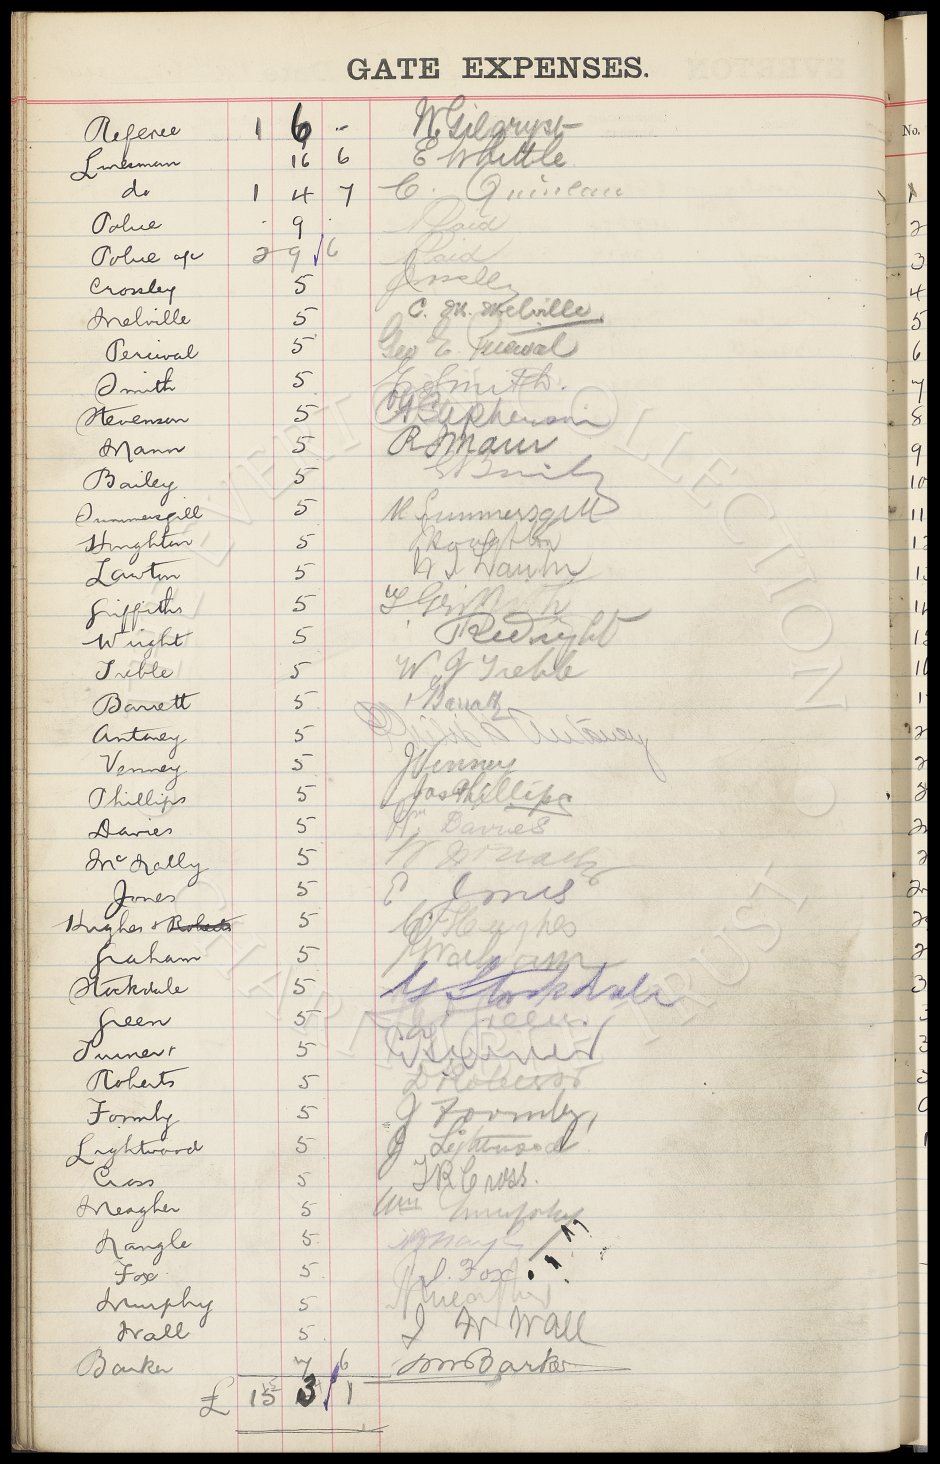 GATE EXPENSES.
No.
Referee 1 6 - W Gilgryst
Linesman 16 6 E Whittle
do 1 4 7 C. Quinlan
Police 9 Paid
Police a/c 2 9 6 Paid
Crossley 5 J Crossley
Melville 5 C. M. Melville
Percival 5 Geo E. Percival
Smith 5 Smith.
Stevenson 5 Stephenson
Mann 5 R Mann
Bailey 5
Summersgill 5 Summersgill
Houghton 5 Houghton
Lawton 5 Lawton
Griffiths 5 Griffith
Wright 5 Wright
Treble 5 W J Treble
Barrett 5 Barratt
Antwey 5
Venney 5 J Venney
Phillips 5 Jas Phillips
Davies 5 Wm Davies
McNally 5 W McNally
Jones 5 E Jones
Hughes + Roberts 5 Hughes
Graham 5 Graham
Stockdale 5 Stockdale
Green 5 Green.
Turner + 5 Turner
Roberts 5 Roberts
Formby 5 J Formby,
Lightwood 5 J Lightwood
Cross 5 T R Cross.
Meagher 5 Wm Murphy
Nangle 5
Fox 5 Fox
Murphy 5 Meagher
Wall 5 J W Wall
Barker 7 6 Barker
£ 15 3 1
THE EVERTON COLLECTION
CHARITABLE TRUST
1
2
3
4
5
6
7
8
9
10
11